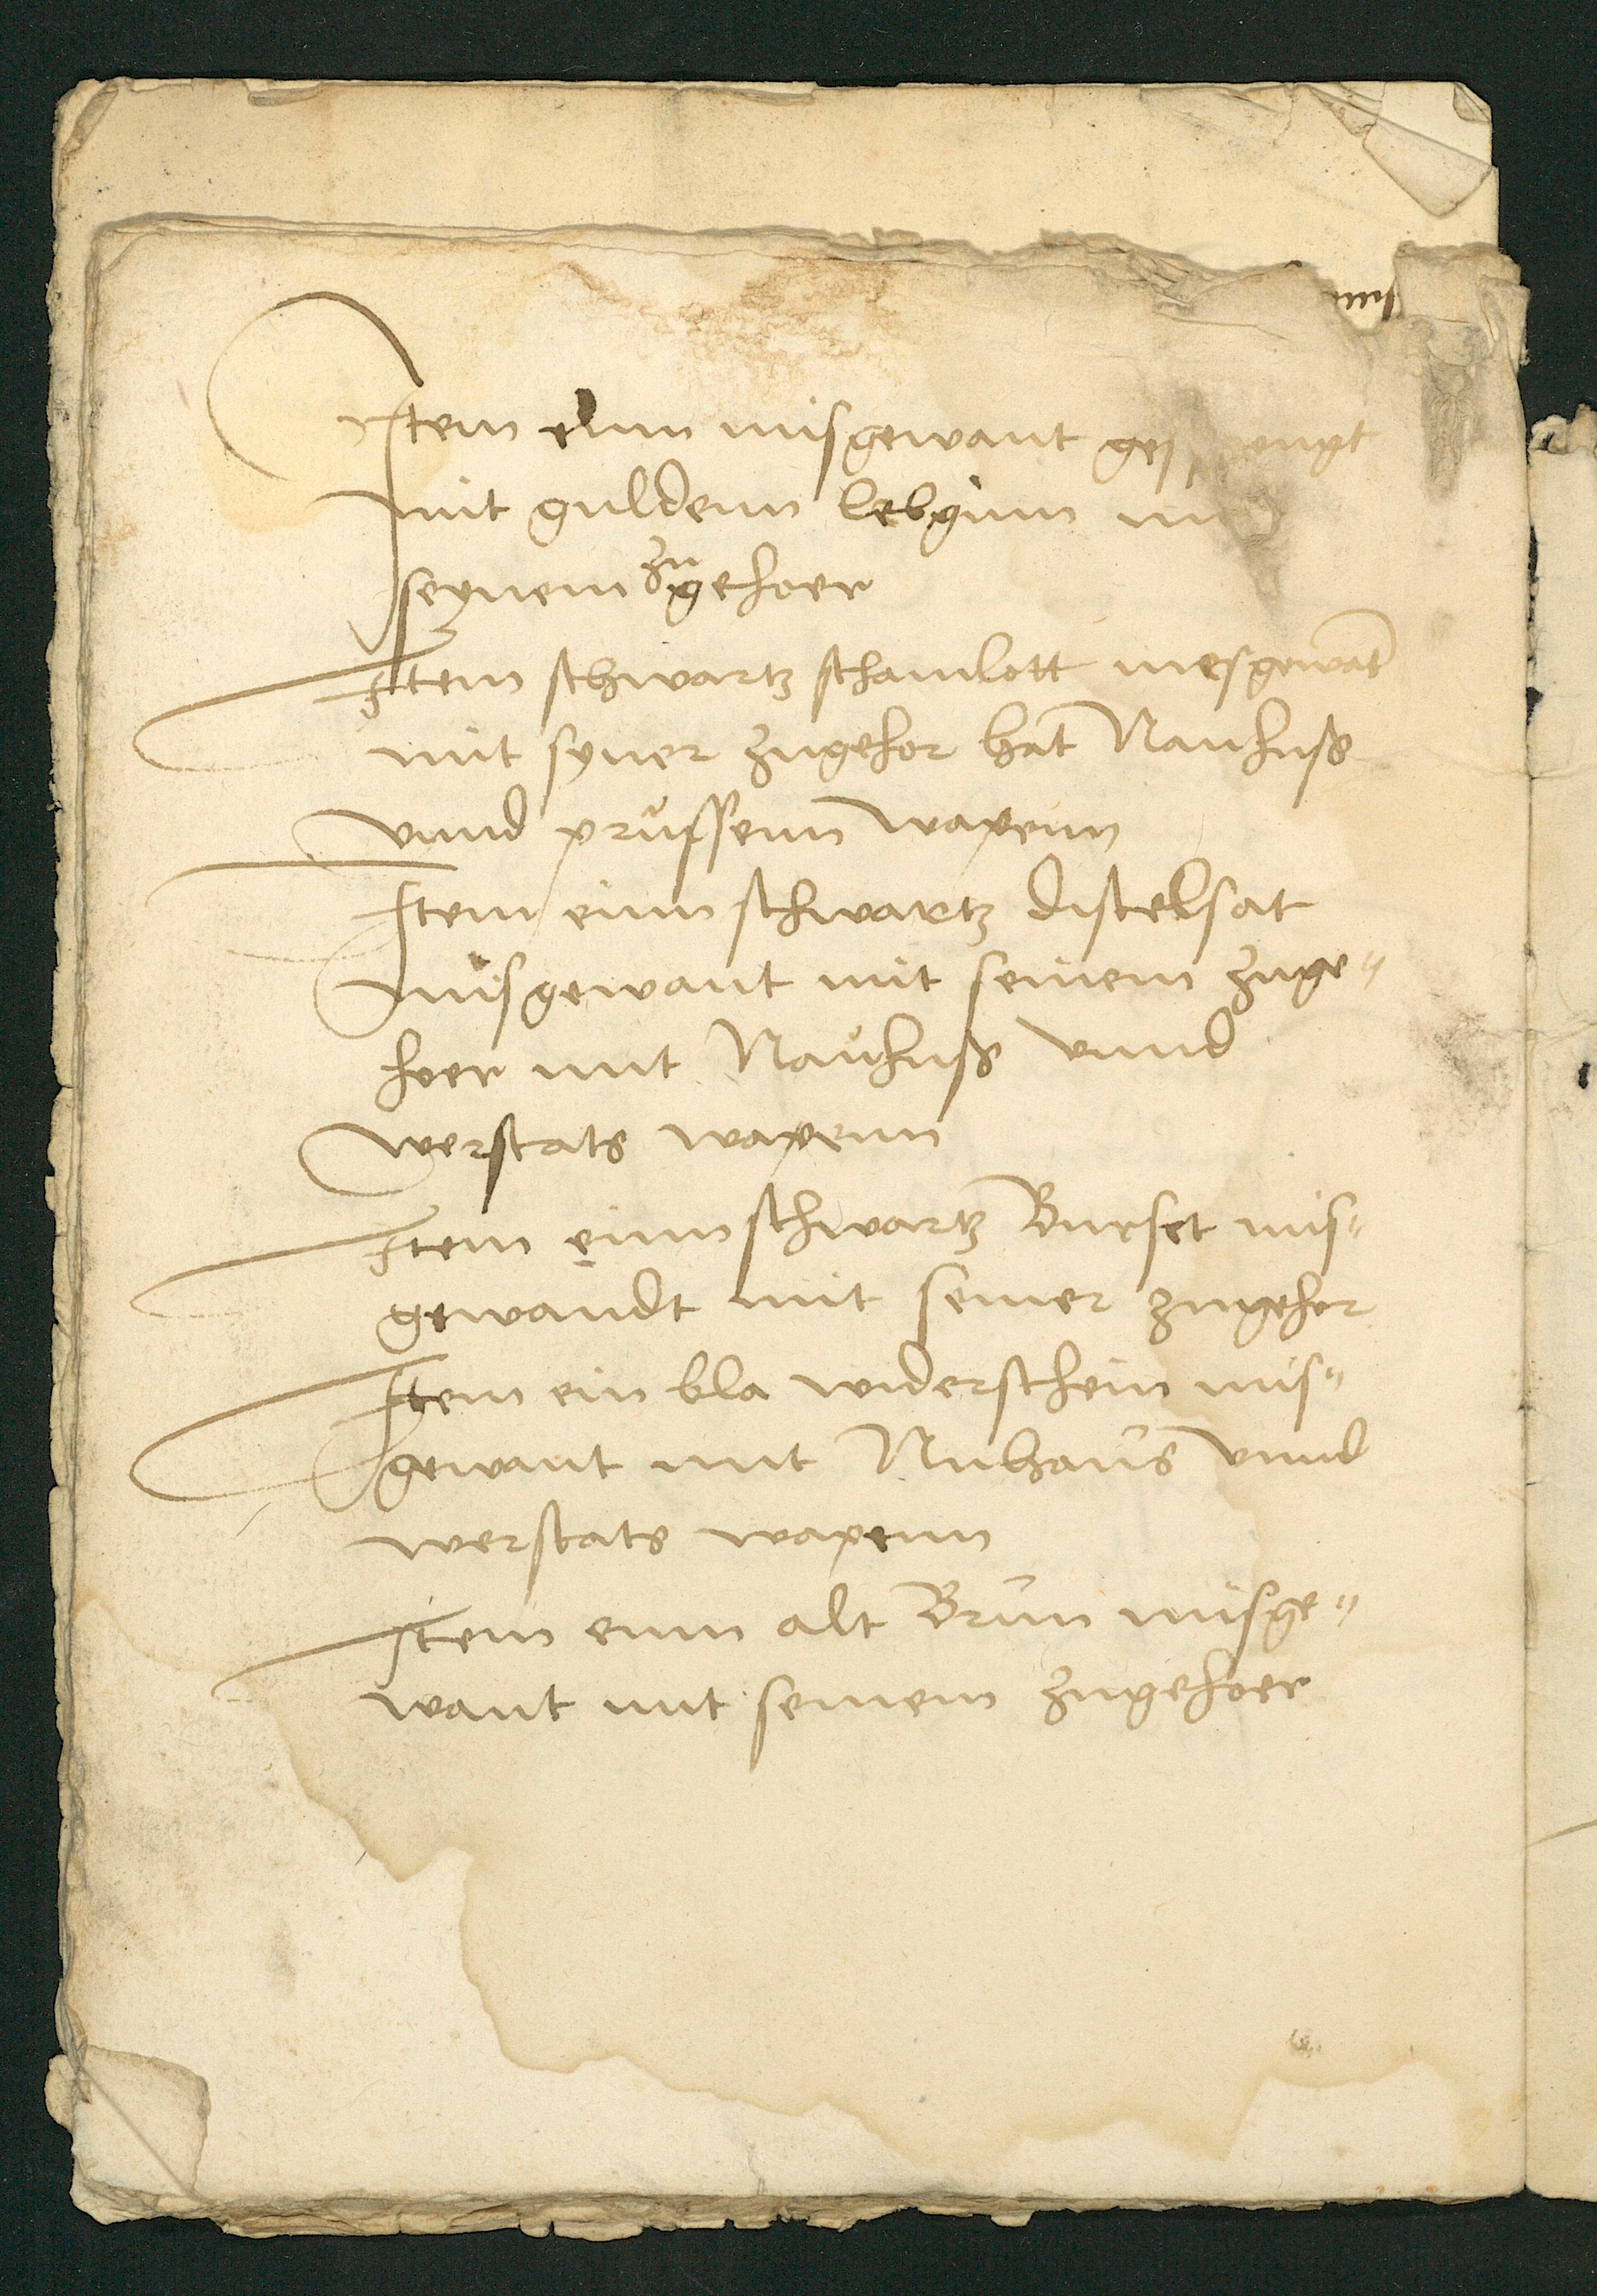 Item einn misgewant
mit guldenn lebginn
seynem zugehoer
Item schwartz schamlott mesgewat
mit syner zugehor hat Nauhuß
vnnd prussenn wapenn
Item einn schwartz distelsat
misgewant mit seinem zuge"
hoer mit Nauhuß vnnd
werstats wapenn
Item einn schwartz Burset mis"
gewandt mit seiner zugehor
Item ein bla widerschein mis"
gewant mit Nuhaus vnnd
werstats wapenn
Item einn alt Brun misge"
want mit seinem zugehoer